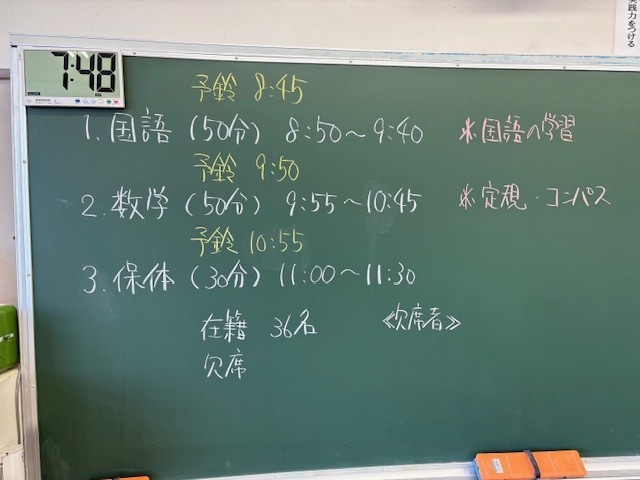 実践力をつける
7:48
予鈴 8:45
1. 国語 (50分) 8:50～9:40 ※国語の学習
予鈴 9:50
2. 数学 (50分) 9:55～10:45 ※定規・コンパス
予鈴 10:55
3. 保体 (30分) 11:00～11:30
在籍 36名 《欠席者》
欠席